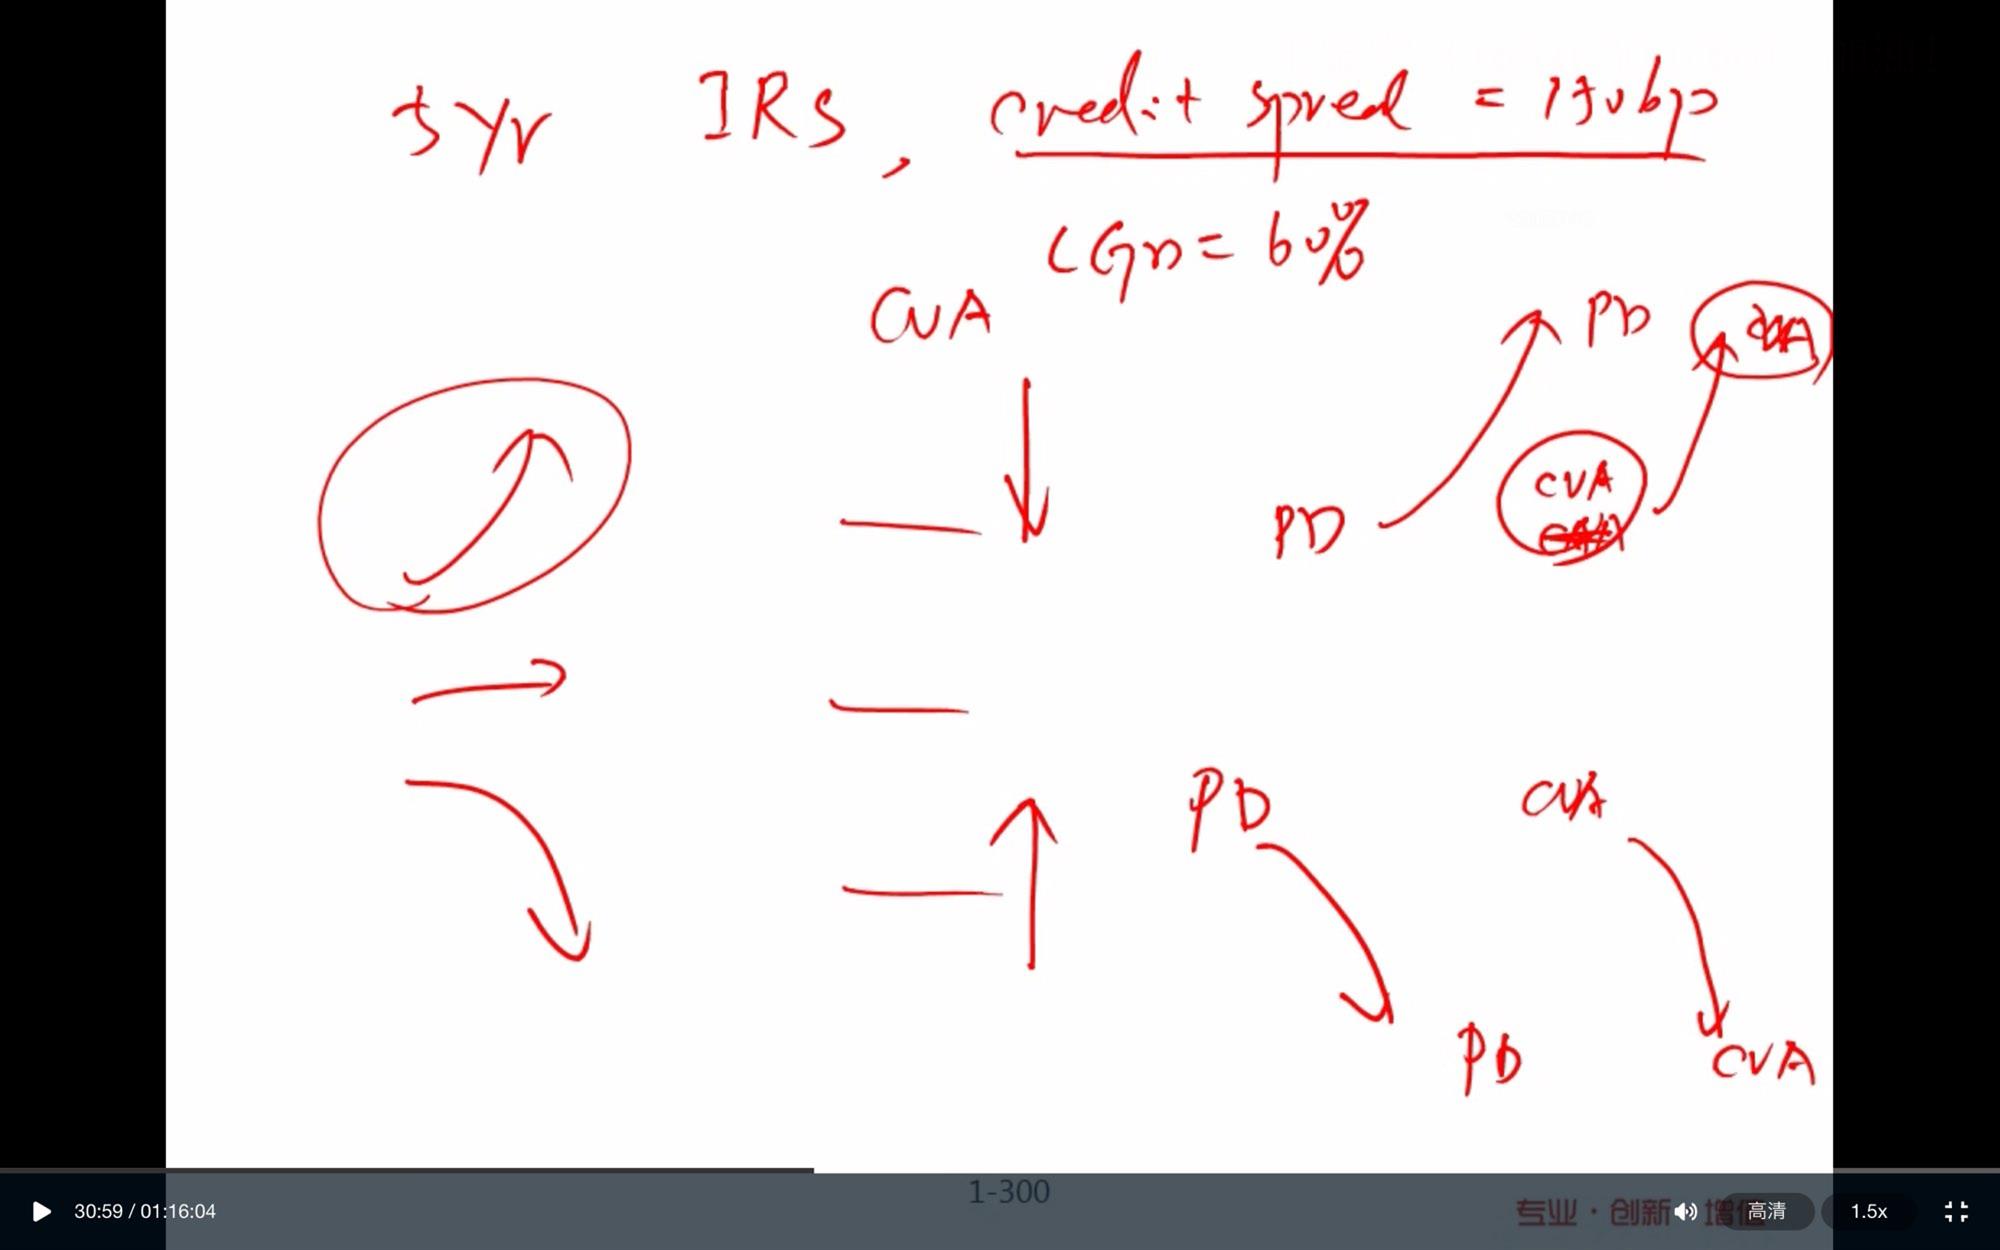 5 Yr IRS, credit spred = 150bp
LGD = 60%
CVA
PD CVA
CVA
PD
PD CVA
PD CVA
1-300
30:59 / 01:16:04 专业·创新 增值 高清 1.5x